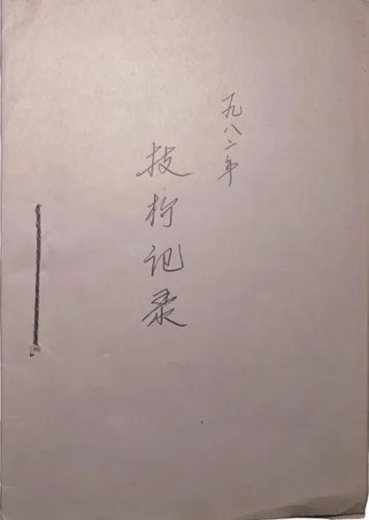 一九八二年
技记录